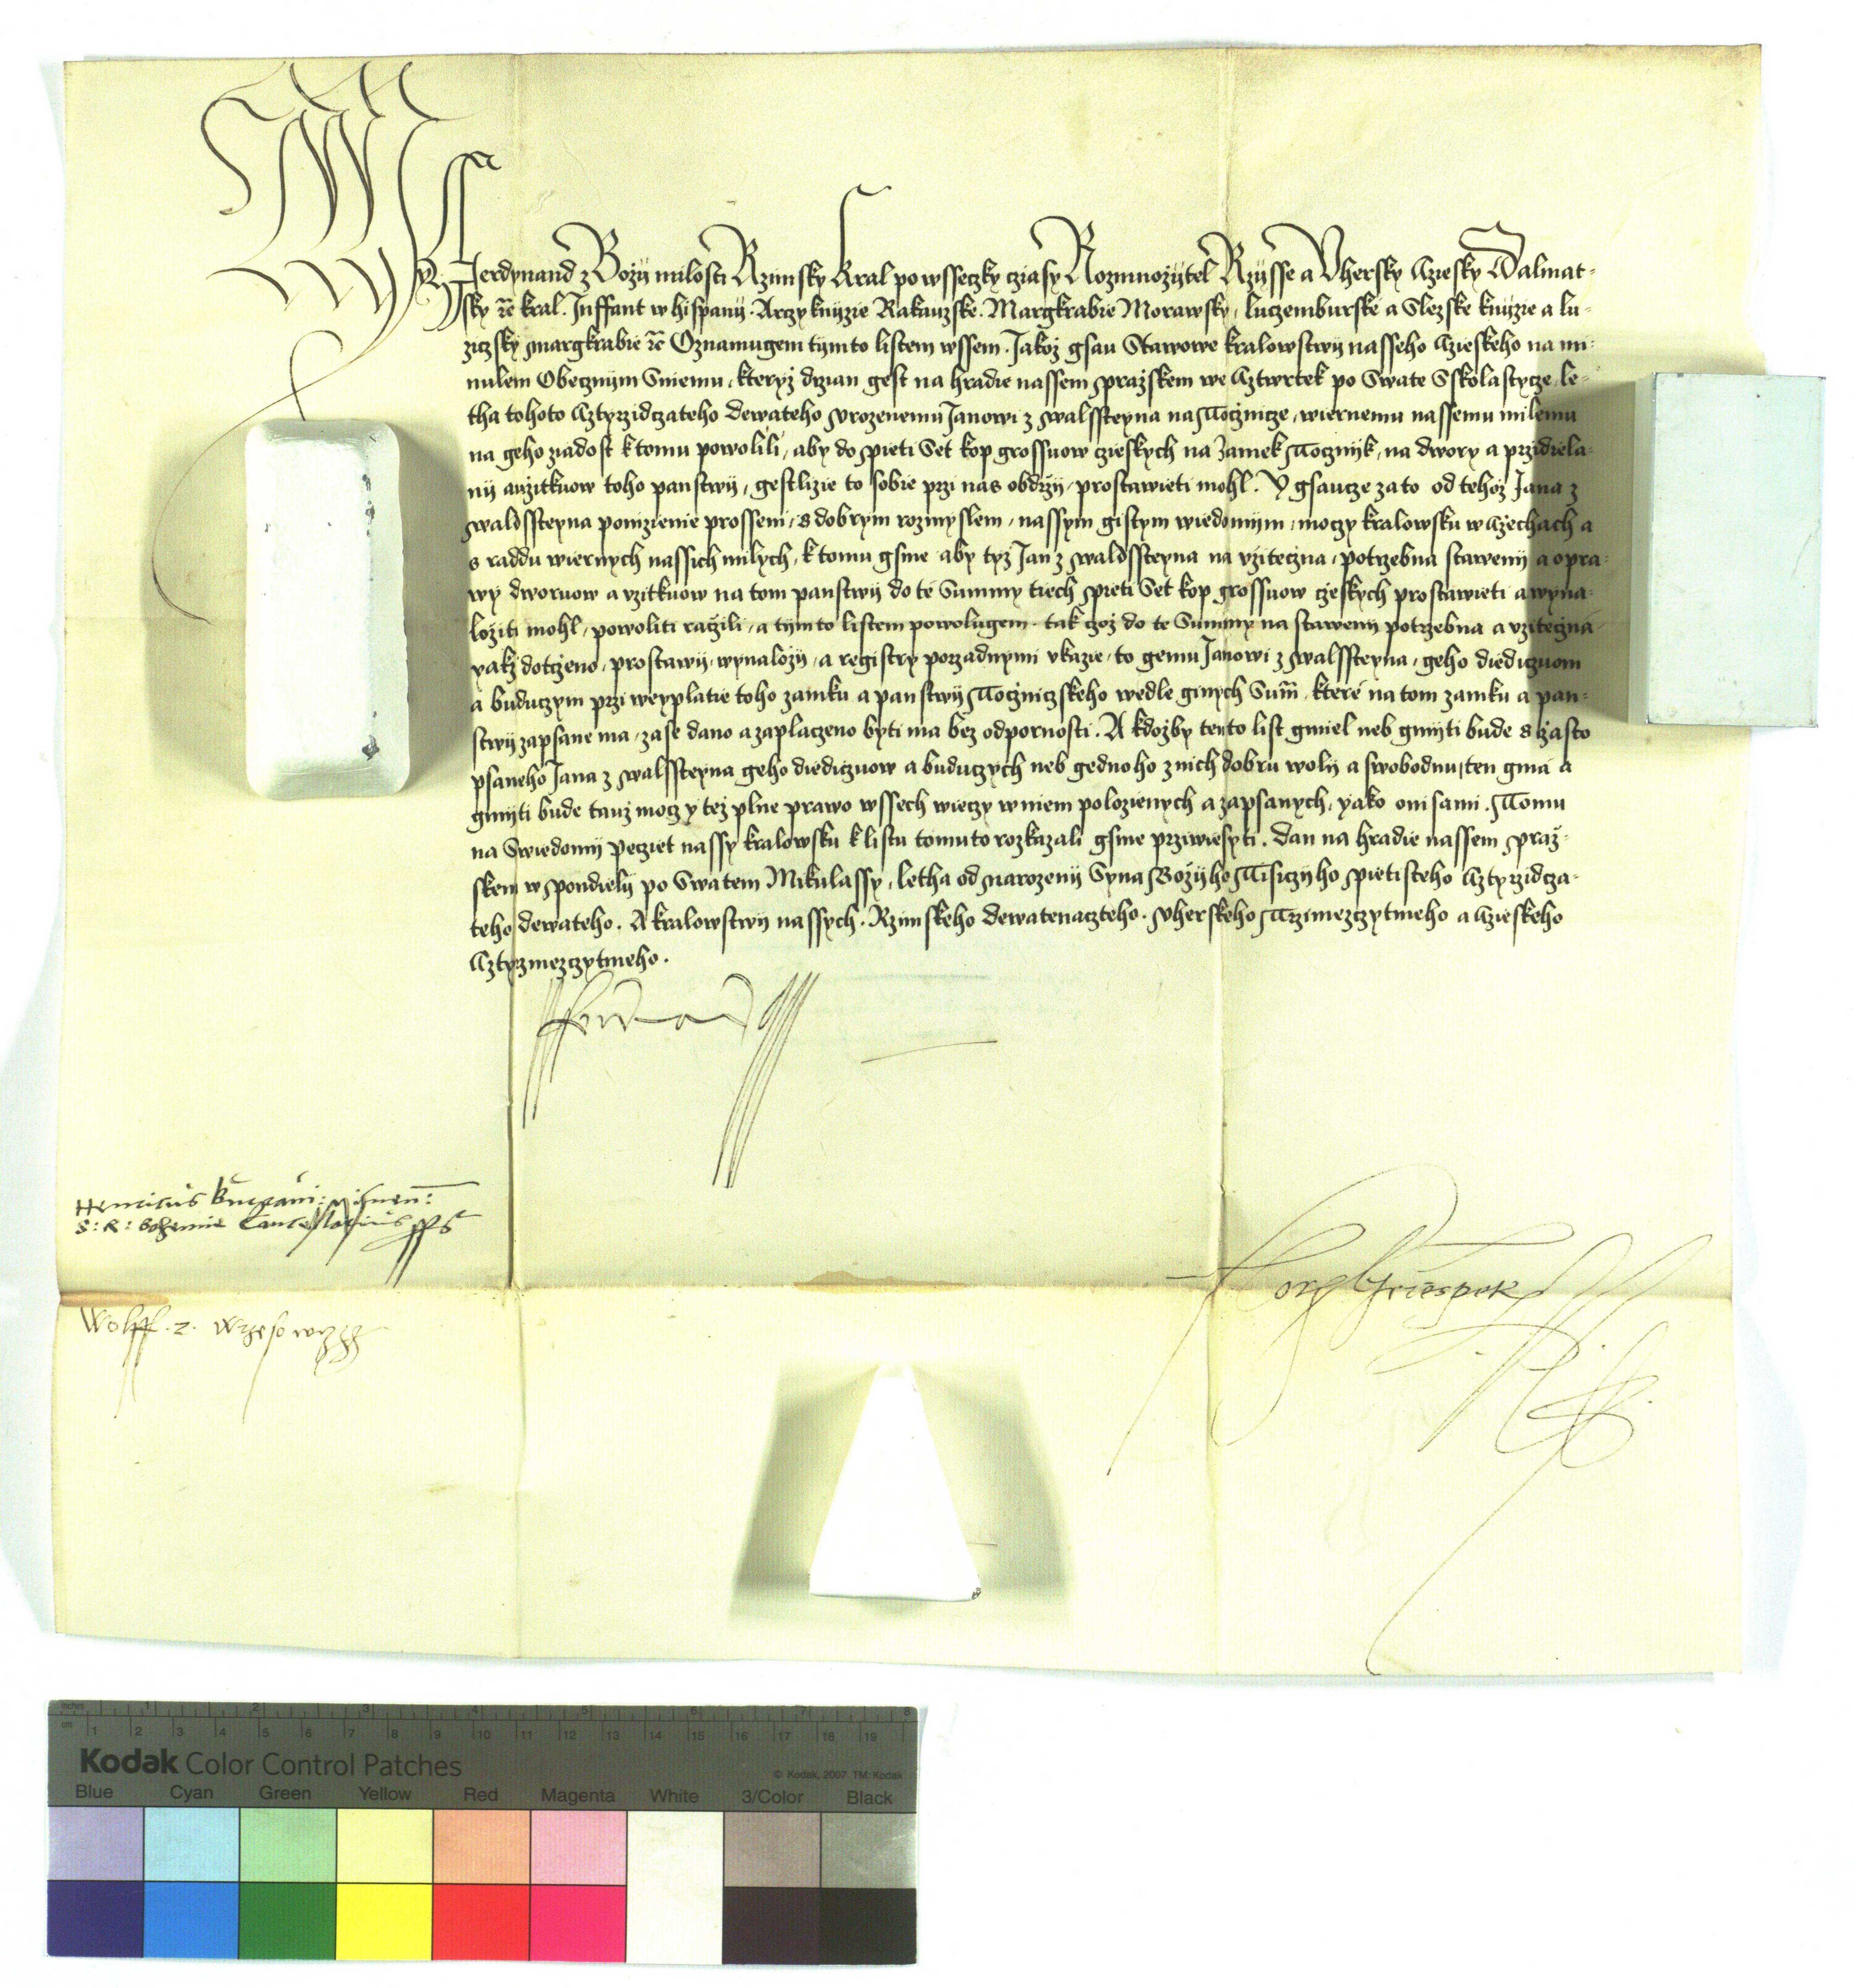 My Fferdynand z Bozij milosti Rzimsky Kral po wsseczky cziasy Rozmnozytel Rzijsse a Vhersky Cziesky Dalmat-
sky rc̄ kral. Inffant w hispanij. Arcy knijzie Rakauzske. Margkrabie Morawsky, luczemburske a Slezske knijzie a lu-
ziczsky margkrabie rc̄ Oznamugem tijmto listem wssem. Jakoz gsau Stawowe kralowstwij nasseho Czieskeho na mi-
nulem Obecznijm Sniemu, kteryz drzian gest na hradie nassem prazskem we Cztwrtek po Swate Sskolastycze, le-
tha tohoto Cztyrzidczateho dewateho vrozenemu Janowi z walssteyna na Toczniczе, wiernemu nassemu milemu
na geho ziadost k tomu powolili, aby do pieti Set kop grossuow czieskych na Zamek Tocznijk, na dwory a przidiela-
nij auzitkuow toho panstwij, gestlizie to sobie przi nas obdrzij, prostawieti mohl. Y gsaucze za to od tehoz Jana z
waldssteyna ponizienie prosseni, s dobrym rozmyslem, nassym gistym wiedomijm, moczy kralowsku w Czechach a
s raddu wiernych nassich milych, k tomu gsme aby tyz Jan z waldssteyna na vziteczna, potrzebna stawenij a opra-
wy dworuow a vzitkuow na tom panstwij do te Summy tiech pieti Set kop grossuow czeskych prostawieti a wyna-
loziti mohl, powoliti raczili, a tijmto listem powolugem. tak czoz do te Summy na stawenij potrzebna a vziteczna
yakz dotczeno, prostawij, wynalozij, a registry porzadnymi vkazie, to gemu Janowi z walssteyna, geho diediczuom
a buduczym przi weyplatie toho zamku a panstwij Tocznicskeho wedle ginych Sum̄, ktere na tom zamku a pan-
stwij zapsane ma, zase dano a zaplaczeno byti ma bez odpornosti. A kdozby tento list gmiel neb gmijti bude s czasto
psaneho Jana z walssteyna geho diediczuow a buduczych neb gednoho z nich dobru woly a swobodnu, ten gma a
gmijti bude tauz moc y tez plne prawo wssech wieczy w niem polozienych a zapsanych, yako oni sami. Tomu
na Swiedomij peczet nassy kralowsku k listu tomuto rozkazali gsme przywiesyti. Dan na hradie nassem praz-
skem w pondiely po Swatem Mikulassy, letha od narozenij Syna Bozijho Tisiczijho pietisteho Cztyrzidcza-
teho dewateho. A kralowstwij nassych. Rzimskeho dewatenaczteho. vherskeho Trzimezczytmeho a Czieskeho
Cztyrzmezczytmeho.
Ferdinand
Henricus Burgravi: misnen̄:
S: R: Bohemie Cancellarius sst
Wolff. z. Wrzesowicz
Florg Griespek
Kodak Color Control Patches
© Kodak, 2007 TM: Kodak
Blue Cyan Green Yellow Red Magenta White 3/Color Black
inches 1 2 3 4 5 6 7 8
cm 1 2 3 4 5 6 7 8 9 10 11 12 13 14 15 16 17 18 19